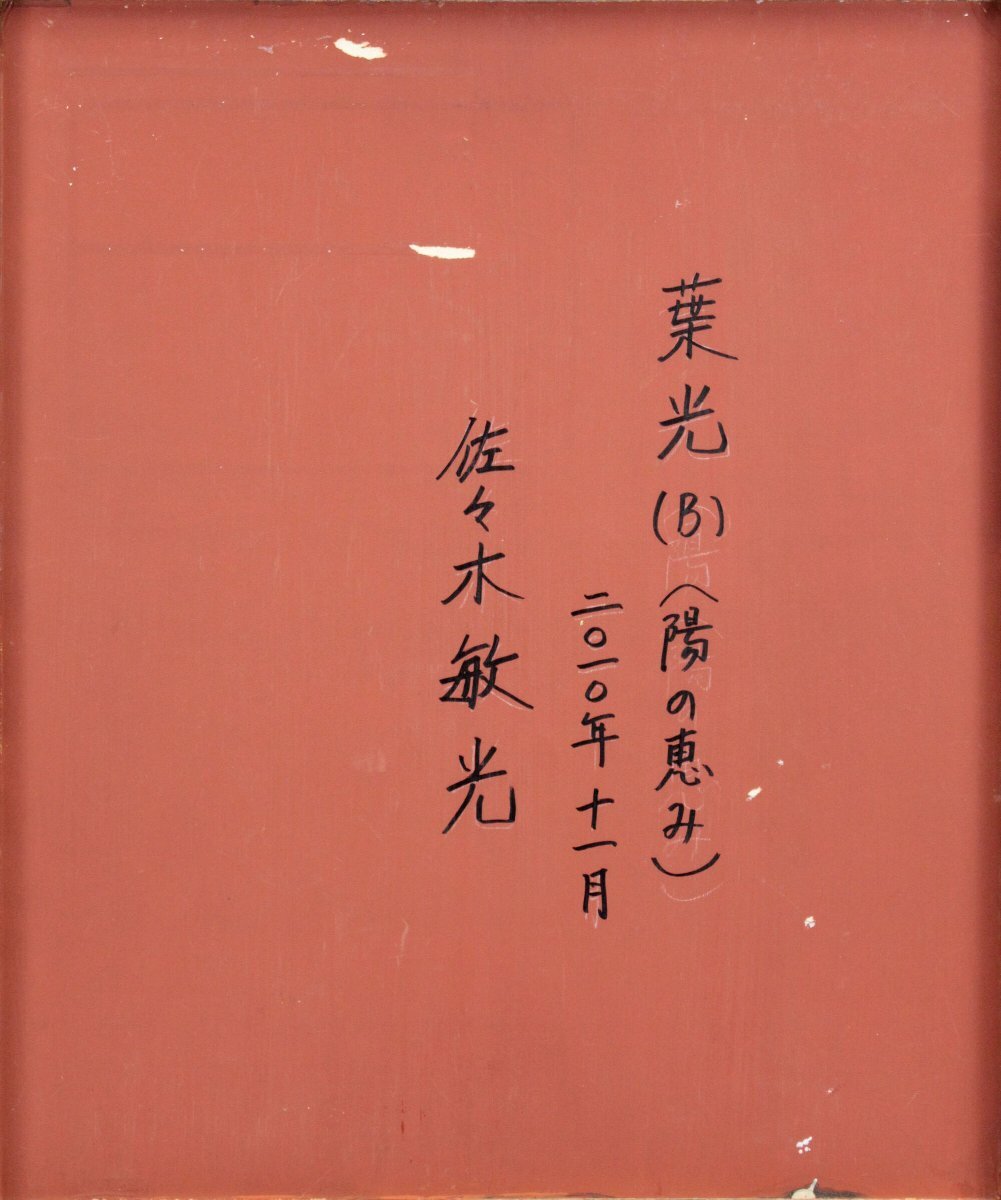 葉光(B)(陽の恵み)
二〇一〇年十一月
佐々木敏光